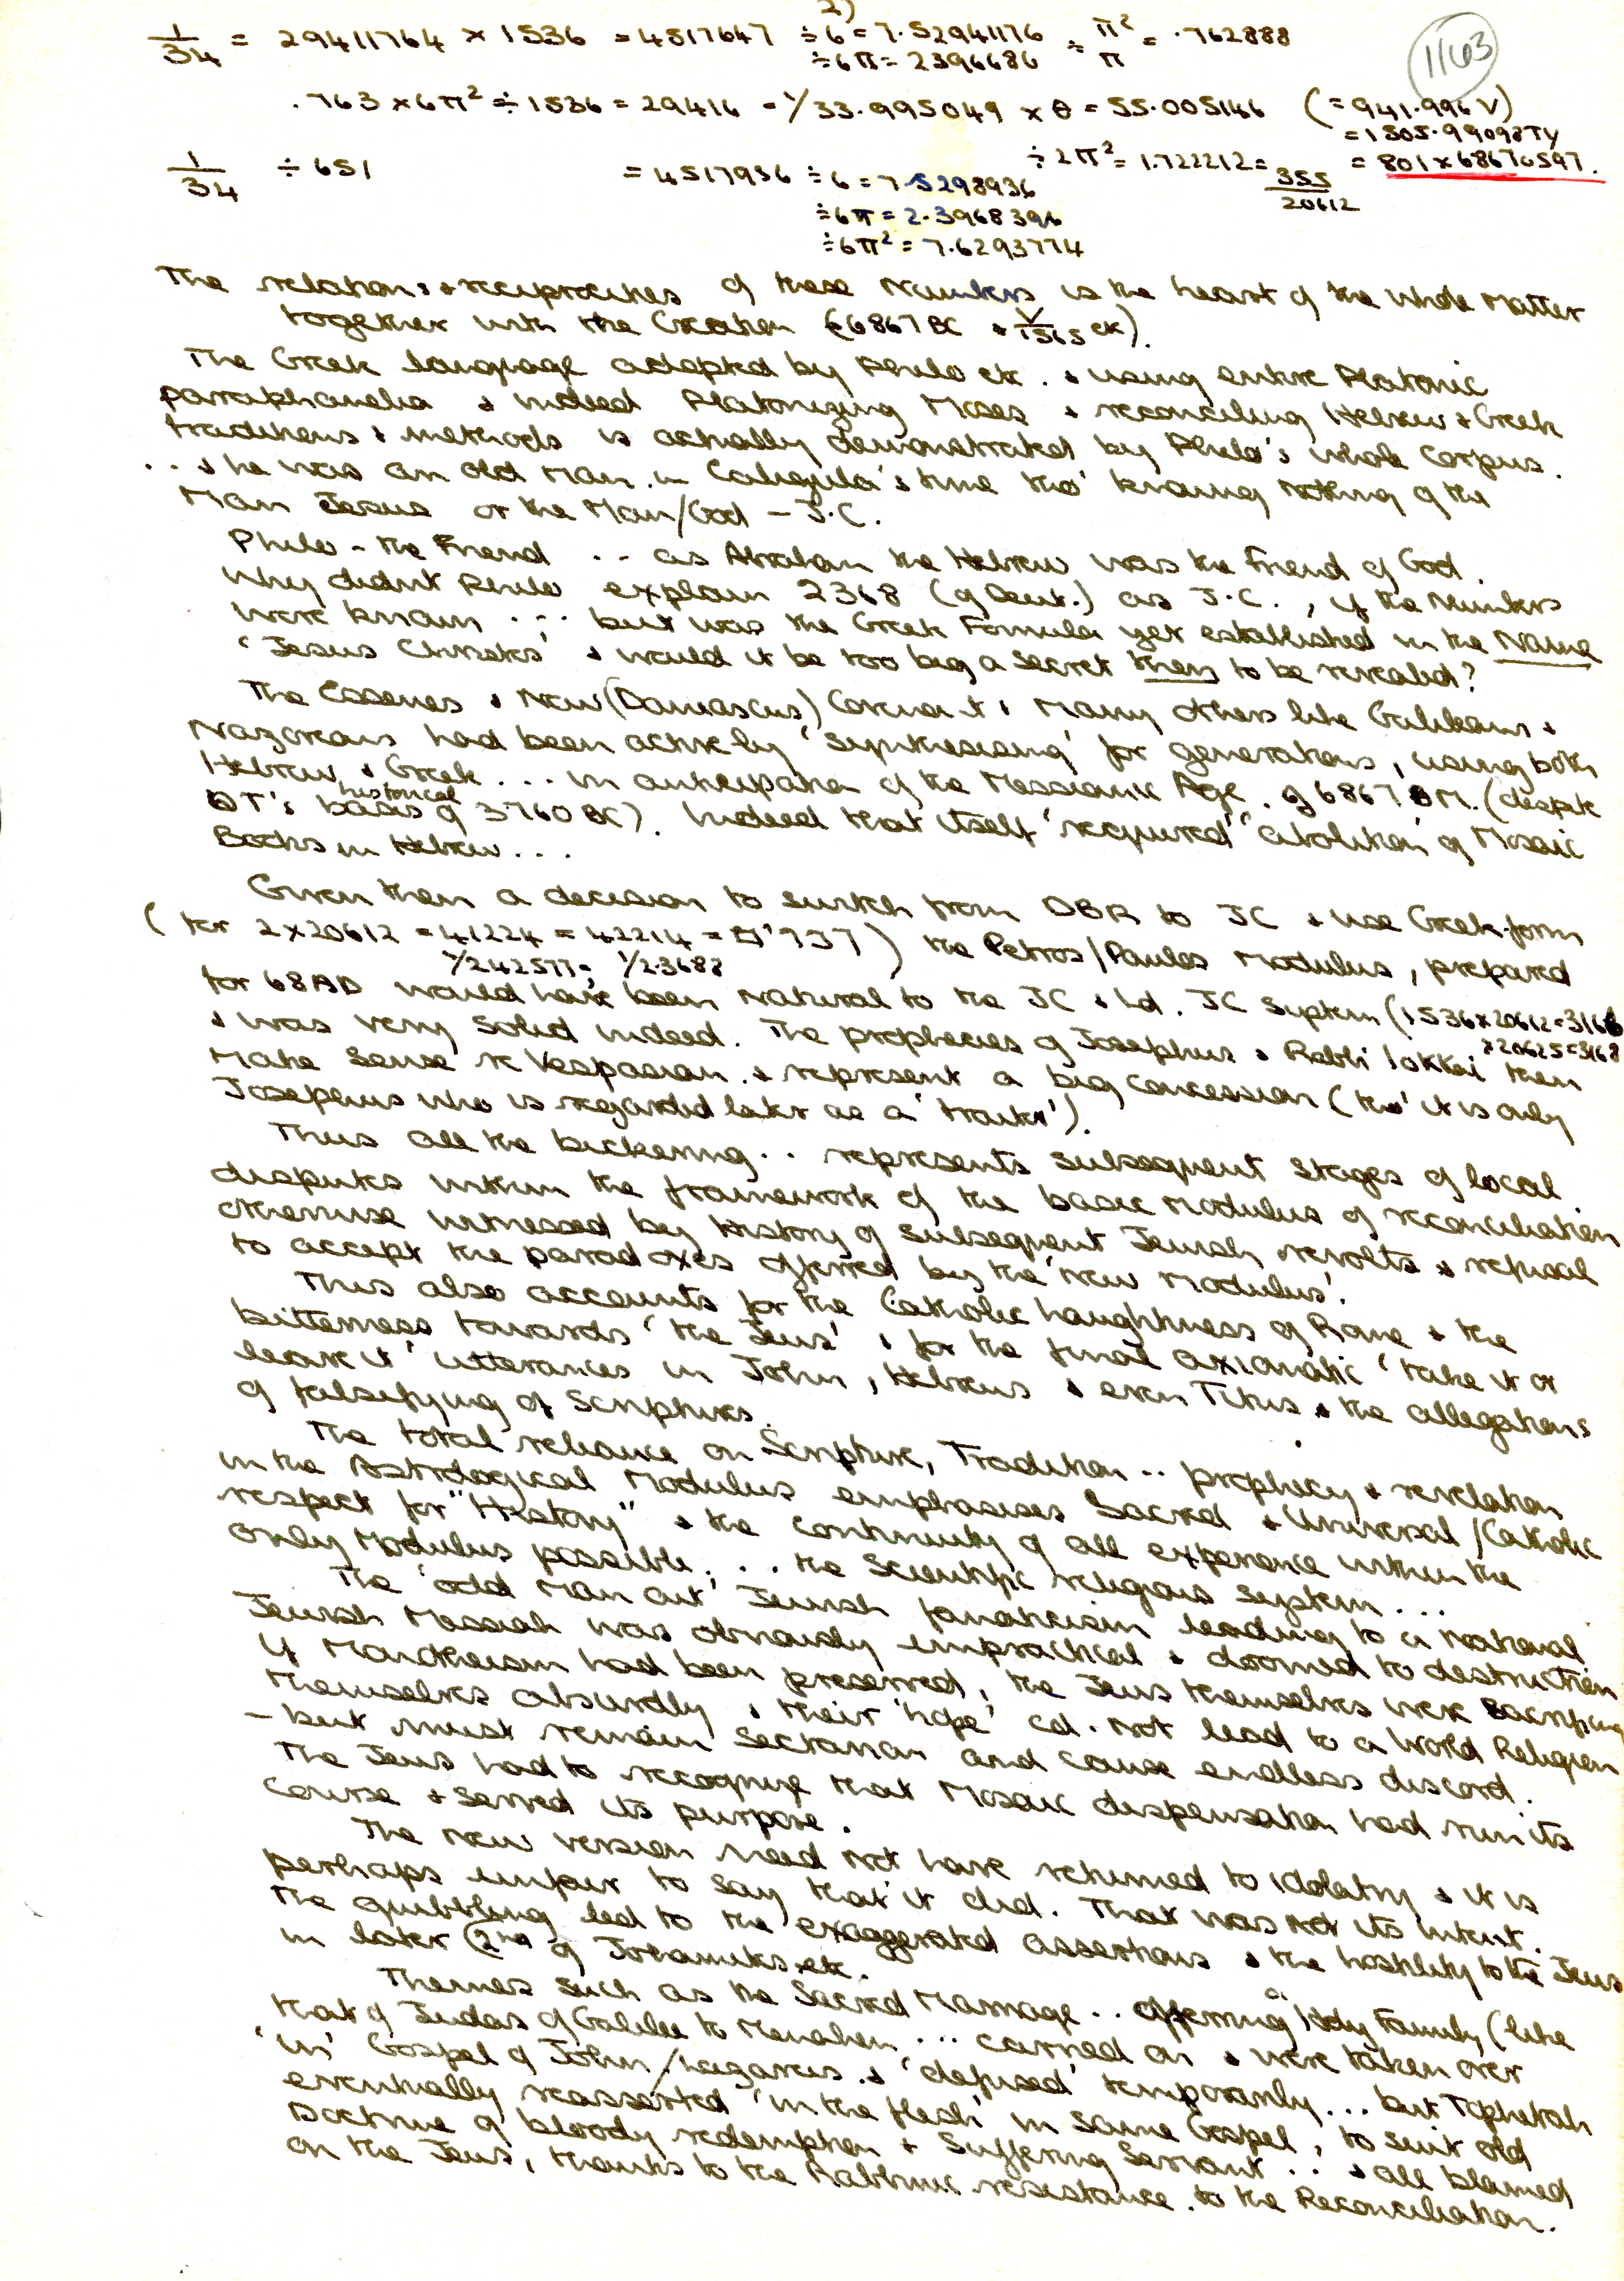 2)
1/34 = 29411764 × 1536 = 4517647 ÷6 = 7.52941176 ÷ π² = .762888
÷6π = 2396686 π
1163
.763 × 6π² ÷ 1536 = 29416 = 1/33.995049 × θ = 55.005166 (= 941.996 V)
= 1505.99098 Ty
÷ 2π² = 1.722212 = 355/20612 = 801 × 68676597.
1/34 ÷ 651 = 4517936 ÷6 = 7.5298936
÷6π = 2.3968396
÷6π² = 7.6293774
The relations & reciprocities of these Numbers is the heart of the whole Matter
together with the Creation (6867 BC & V/1565 etc).
The Greek language adopted by Philo etc. & using entire Platonic
parraphanelia & indeed Platonizing Moses & reconciling Hebrew & Greek
traditions & methods is actually demonstrated by Philo's whole Corpus.
.. & he was an old Man in Caligula's time tho' knowing nothing of the
Man Jesus or the Man/God – J.C.
Philo – the Friend .. as Abraham the Hebrew was the Friend of God.
Why didn't Philo explain 2368 (of Deut.) as J.C., if the Numbers
were known ... but was the Greek Formula yet established in the Name
'Jesus Christos' & would it be too big a secret then to be revealed?
The Essenes & New (Damascus) Covenant & Many others like Galileans &
Nazoreans had been actively 'synthesising' for generations, using both
Hebrew & Greek ... in anticipation of the Messianic Age. of 6867 BM. (despite
OT's historical basis of 3760 BC). Indeed that itself 'required' 'abolition' of Mosaic
Books in Hebrew ...
Given then a decision to switch from DBR to JC & use Greek form
(for 2×20612 = 41224 = 42214 = ) the Petros/Paulos Modulus, prepared
1/242577 = 1/2.3688
for 68 AD would have been natural to the JC & Ld. JC System (1536×20612=3166
×20625=3168
& was very solid indeed. The prophecies of Josephus & Rabbi Iokkai then
Make sense re Vespasian & represent a big concession (tho' it is only
Josephus who is regarded later as a 'traitor').
Thus all the bickering .. represents subsequent stages of local
disputes within the framework of the basic Modulus of reconciliation
otherwise witnessed by history of subsequent Jewish revolts & refusal
to accept the paradoxes offered by the 'new Modulus'.
This also accounts for the Catholic haughtiness of Rome & the
bitterness towards 'the Jews' & for the final axiomatic 'take it or
leave it' utterances in John, Hebrews & even Titus & the allegations
of falsifying of Scriptures.
The total reliance on Scripture, Tradition .. prophecy & revelation
in the Astrological Modulus emphasises Sacred & Universal/Catholic
respect for "History" & the continuity of all experience within the
only Modulus possible. .. the Scientific religious system ...
The 'odd Man out' Jewish fanaticism leading to a national
Jewish Messiah was obviously impractical & doomed to destruction
If Monotheism had been preserved, the Jews themselves were sacrificing
themselves absurdly & their 'hope' cd. not lead to a World Religion
– but must remain Sectarian and cause endless discord.
The Jews had to recognize that Mosaic dispensation had run its
course & served its purpose.
The new version need not have returned to idolatry & it is
perhaps unfair to say that it did. That was not its intent.
The quibbling led to the exaggerated assertions & the hostility to the Jews
in later (2nd of Johannites etc.
Themes such as the Sacred Marriage .. offering a Holy Family (like
that of Judas of Galilee to Menahem ... carried on & were taken over
'in' Gospel of John/Lazarus & 'defused' temporarily ... but Tophetah
eventually reasserted 'in the flesh' in same Gospel, to suit old
Doctrine of bloody redemption & Suffering Servant .. & all blamed
on the Jews, thanks to the Rabbinic resistance to the Reconciliation.